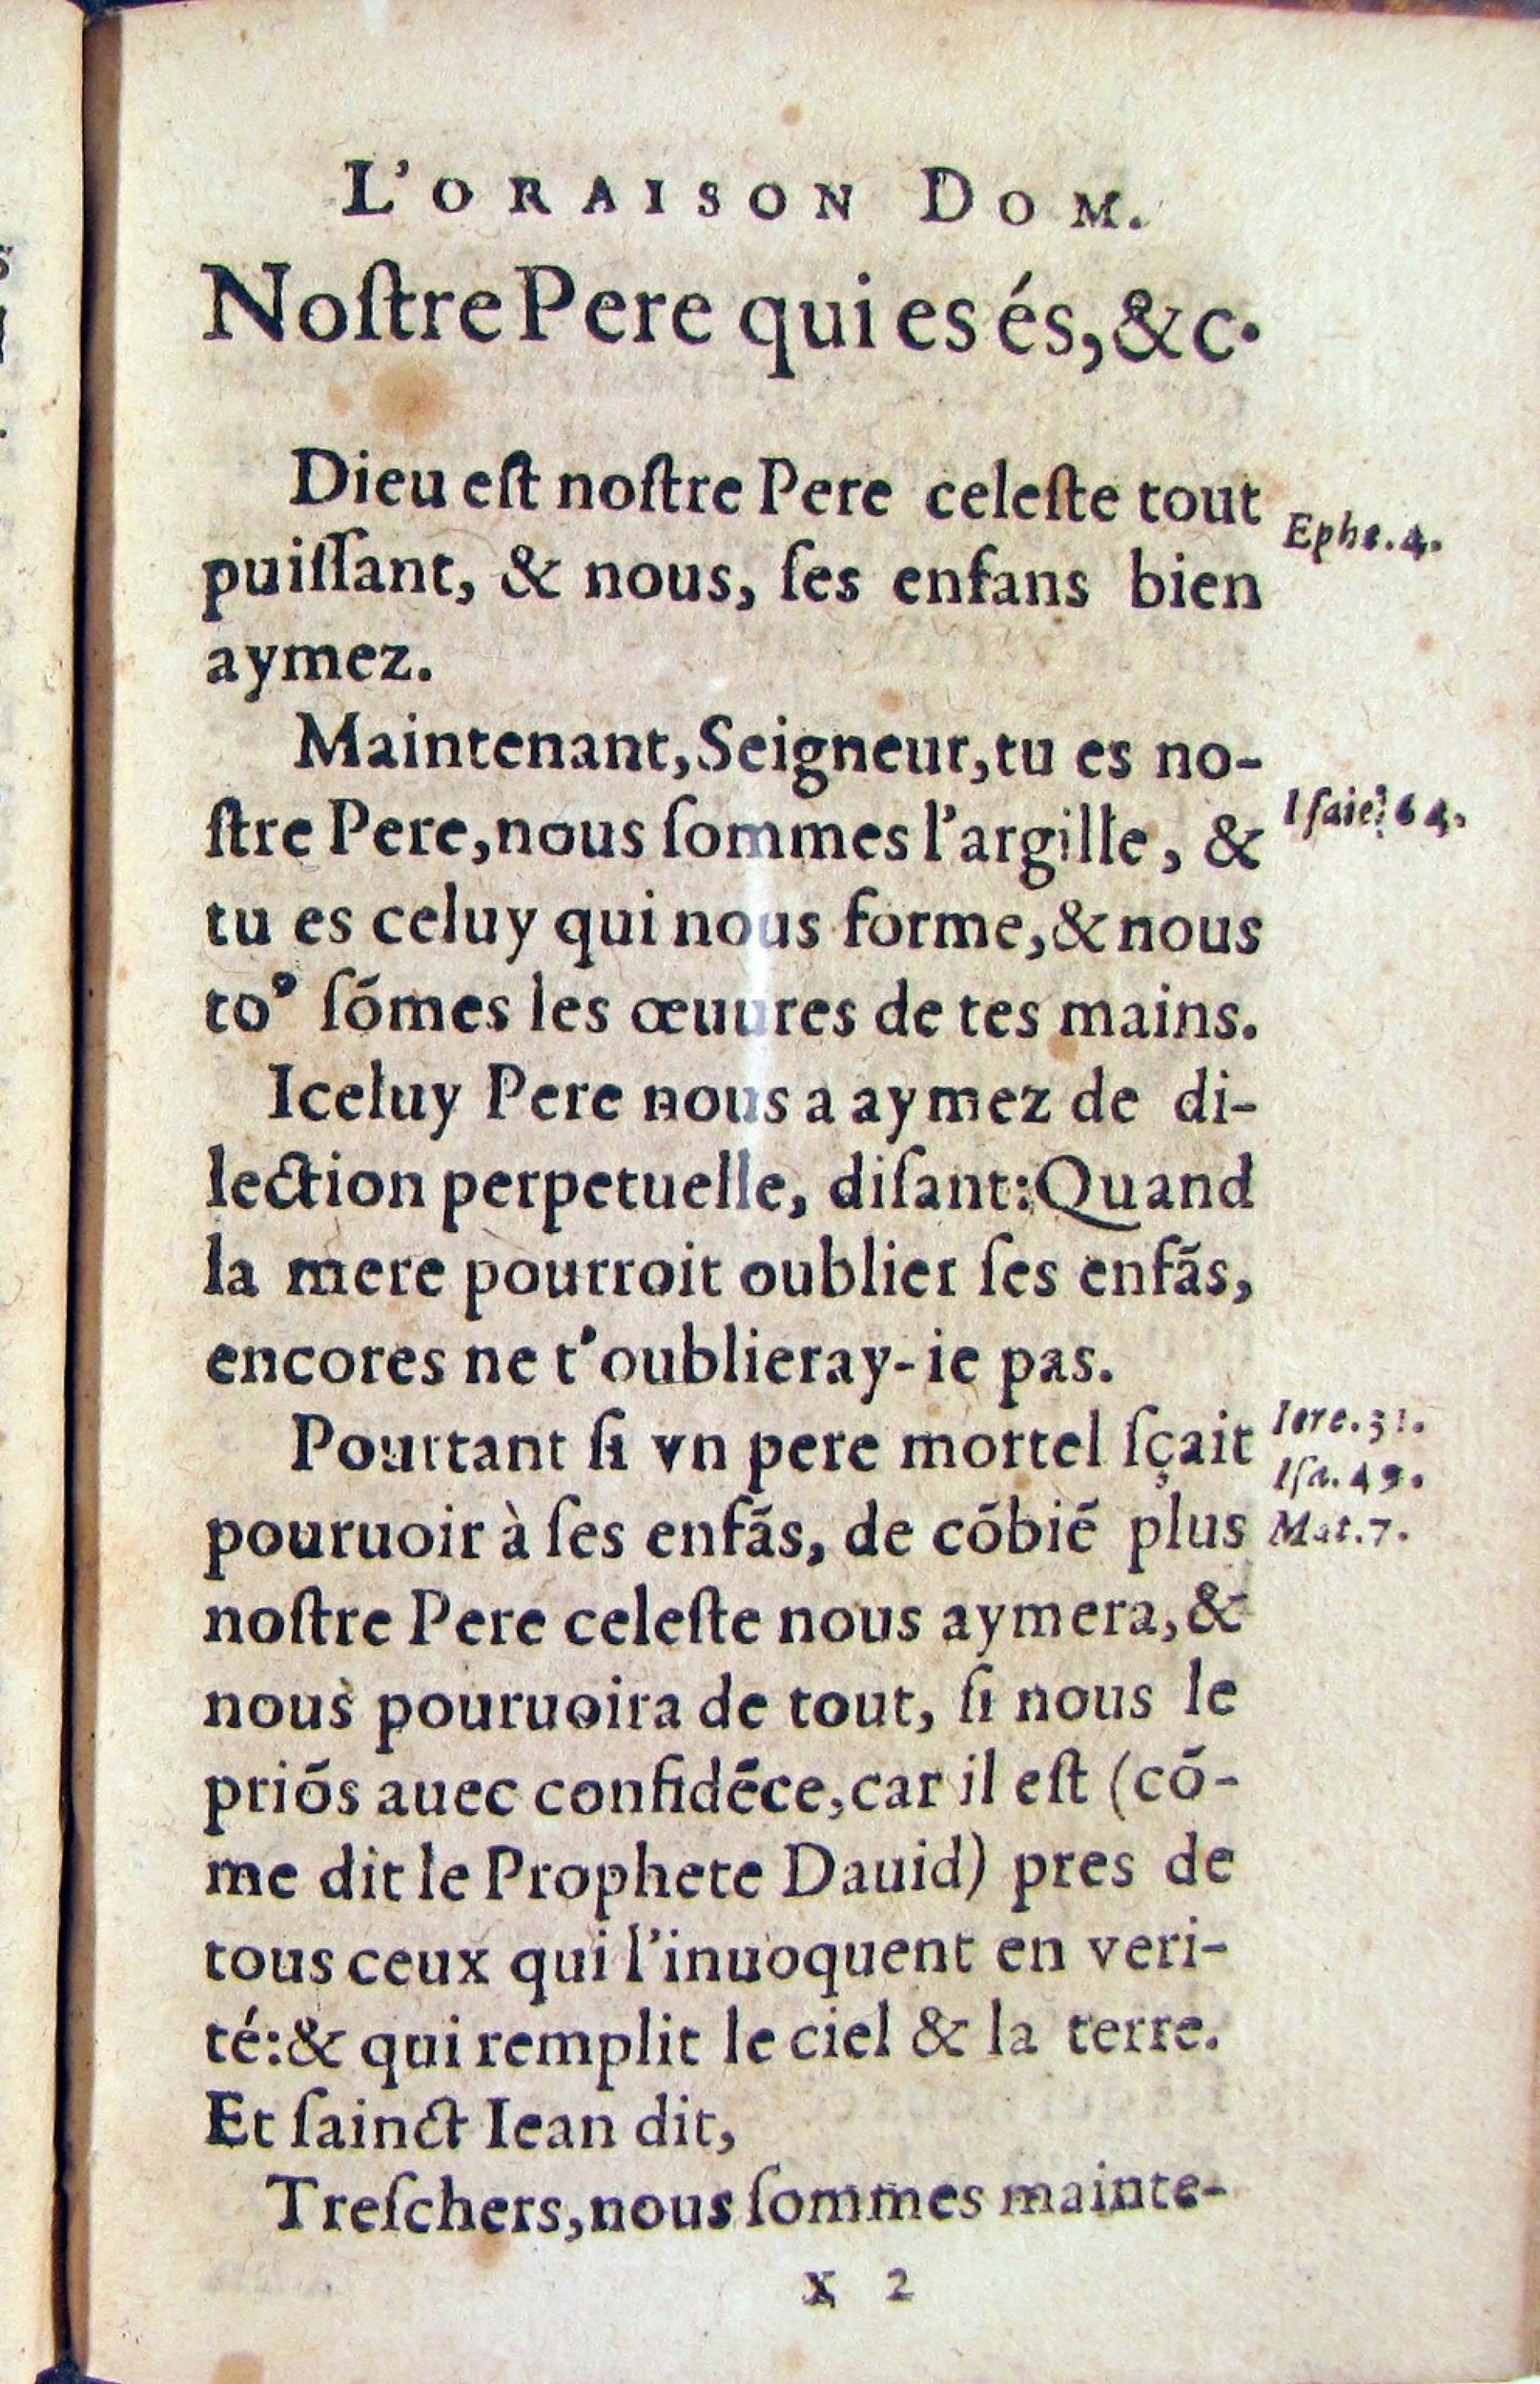 L'ORAISON DOM.
Noſtre Pere qui es és, &c.
Dieu eſt noſtre Pere celeſte tout
Ephe. 4.
puiſſant, & nous, ſes enfans bien
aymez.
Maintenant, Seigneur, tu es no-
ſtre Pere, nous ſommes l'argille, &
Iſaie 64.
tu es celuy qui nous forme, & nous
toꝰ ſómes les œuures de tes mains.
Iceluy Pere nous a aymez de di-
lection perpetuelle, diſant: Quand
la mere pourroit oublier ſes enfãs,
encores ne t'oublieray-ie pas.
Pourtant ſi vn pere mortel ſçait
Iere. 31.
Iſa. 49.
pouruoir à ſes enfãs, de cõbiẽ plus
Mat. 7.
noſtre Pere celeſte nous aymera, &
nous pouruoira de tout, ſi nous le
priõs auec confidẽce, car il eſt (cõ-
me dit le Prophete Dauid) pres de
tous ceux qui l'inuoquent en veri-
té: & qui remplit le ciel & la terre.
Et ſainct Iean dit,
Treſchers, nous ſommes mainte-
X 2